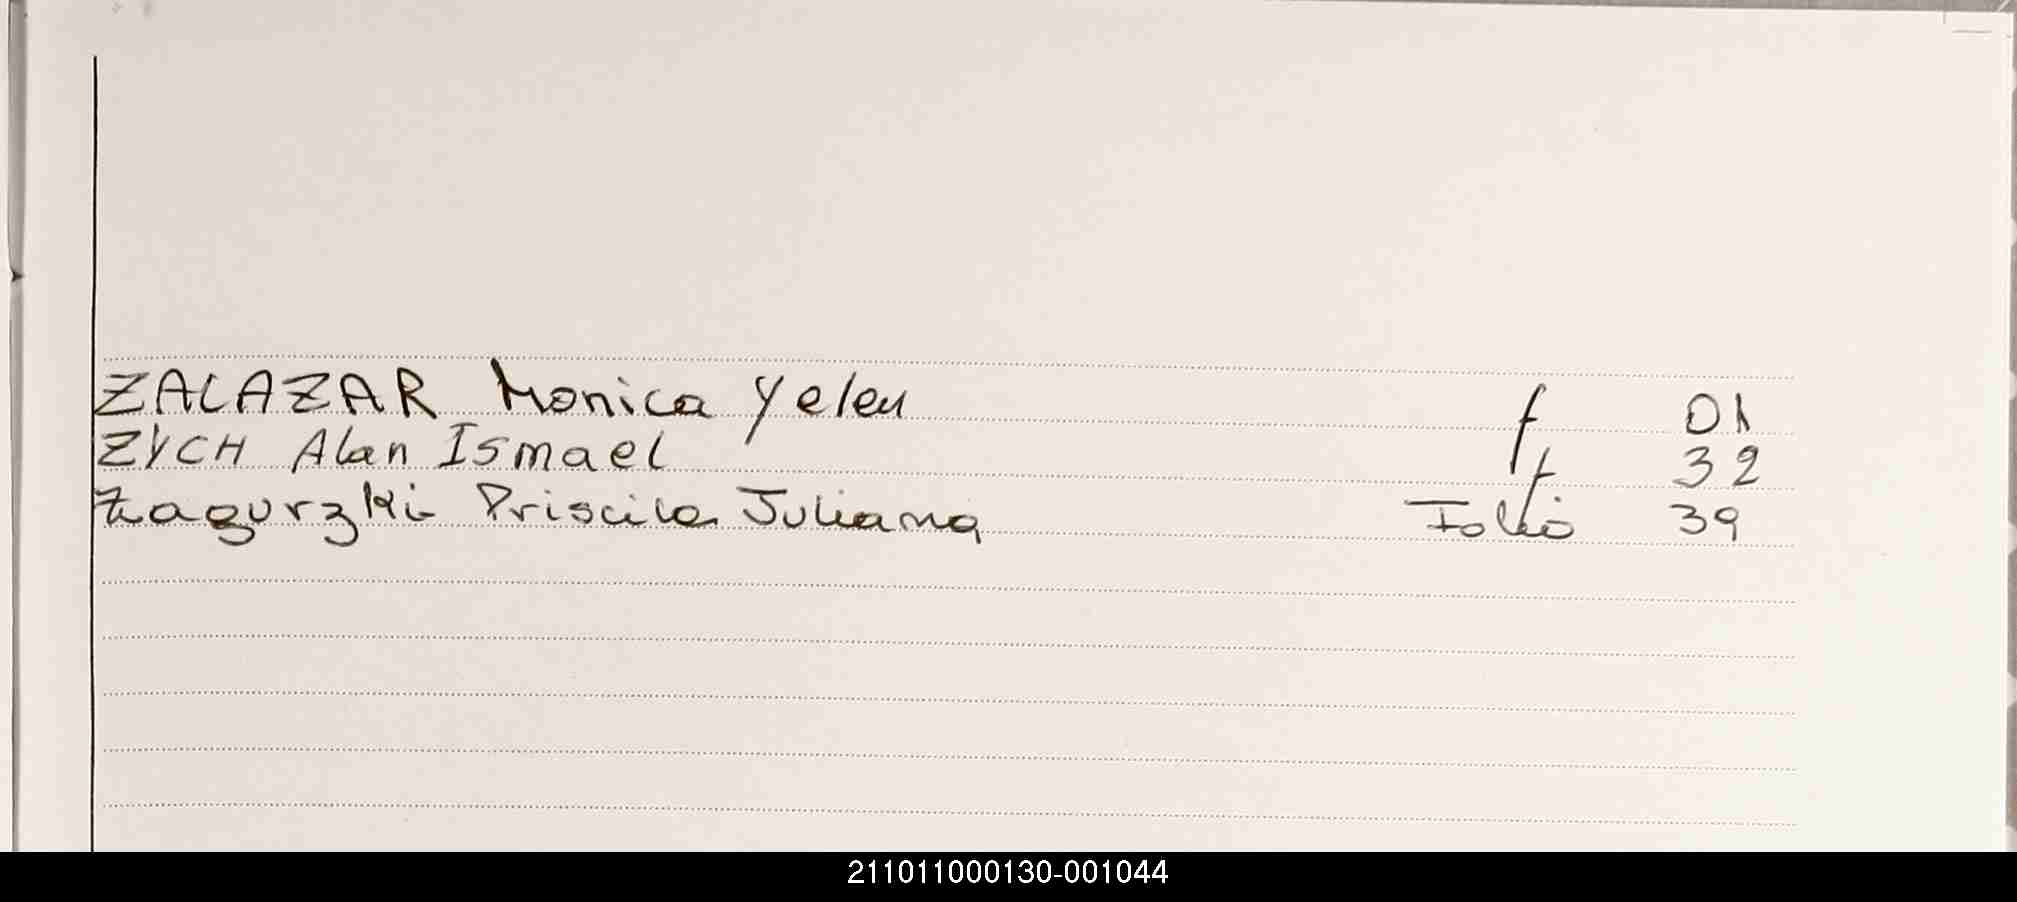 ZALAZAR Monica Yelen f 01
ZYCH Alan Ismael f 32
Zagurzki Priscila Juliana Folio 39
211011000130-001044